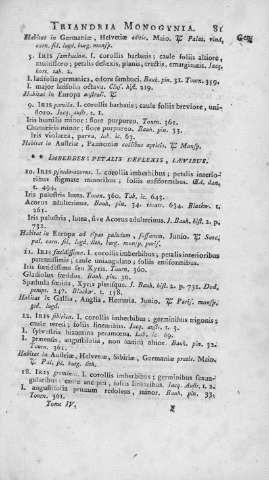 TRIANDRIA MONOGYNIA. 81
Habitat in Germaniæ, Helvetiæ editis. Majo. ♃ Palat. vind.
carn. sil. lugd. burg. monsp.
5. IRIS sambucina. I. corollis barbatis; caule foliis altiore,
multifloro; petalis deflexis, planis, erectis, emarginatis. Jacq.
hort. tab. 2.
I. latifolia germanica, odore sambuci. Bauh. pin. 31. Tourn. 359.
I. major latifolia octava. Clus. hist. 219.
Habitat in Europa australi. ♃
9. IRIS pumila. I. corollis barbatis; caule foliis breviore, uni-
floro. Jacq. austr. t. 1.
Iris humilis minor; flore purpureo. Tourn. 361.
Chamæiris minor; flore purpureo. Bauh. pin. 33.
Iris violacea, parva. lut. 63.
Habitat in Austriæ, Pannoniæ collibus apricis. ♃ Monsp.
* * IMBERBES: PETALIS DEFLEXIS, LÆVIBUS.
10. IRIS pseud-acorus. I. corollis imberbibus; petalis interio-
ribus stigmate minoribus; foliis ensiformibus. Œd. dan.
t. 494.
Iris palustris lutea. Tourn. 360. Tab. ic. 643.
Acorus adulterinus. Bauh. pin. 34. theatr. 634. Blackw. t.
261.
Iris palustris, lutea, sive Acorus adulterinus. J. Bauh. hist. 2. p.
732.
Habitat in Europæ ad ripas paludum, fossarum. Junio. ♃
pal. carn. sil. lugd. lith. burg. monsp. paris.
11. IRIS fœtidissima. I. corollis imberbibus; petalis interioribus
patentissimis; caule uniangulato; foliis ensiformibus.
Iris fœtidissima seu Xyris. Tourn. 360.
Gladiolus fœtidus. Bauh. pin. 30.
Spathula fœtida, Xyris plerisque. J. Bauh. hist. 2. p. 731. Dod.
pempt. 247. Blackw. t. 158.
Habitat in Gallia, Anglia, Hetruria. Junio. ♃ Paris. monsp.
lugd.
12. IRIS sibirica. I. corollis imberbibus; germinibus trigonis;
caule tereti; foliis linearibus. Jacq. austr. t. 3.
I. sylvestris bizantina peramœna. Lob. ic. 69.
I. pratensis, angustifolia, non fœtida altior. Bauh. pin. 32.
Tourn. 361.
Habitat in Austriæ, Helvetiæ, Sibiriæ, Germaniæ pratis. Majo.
♃ Pal. sil. burg. lith.
18. IRIS graminea. I. corollis imberbibus; germinibus sexan-
gularibus; caule ancipiti; foliis linearibus. Jacq. Austr. t. 2.
I. angustifolia prunum redolens, minor. Bauh. pin. 33.
Tourn. 361.
Tome IV.